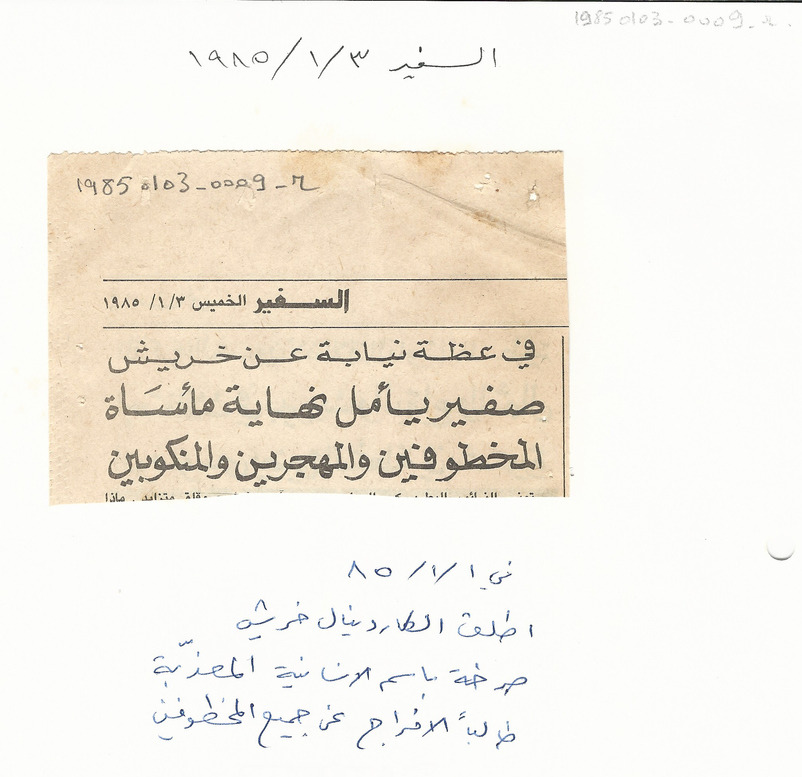 1985 0103-0009-r
السفير ١٩٨٥/١/٣
1985 0103-0009-r
السفير الخميس ١٩٨٥/١/٣
في عظة نيابة عن خريش
صفير يأمل نهاية مأساة
المخطوفين والمهجرين والمنكوبين
في ٨٥/١/١
اطلق الكاردينال خريش
صرخة باسم الانسانية المعذّبة
طالباً الافراج عن جميع المخطوفين